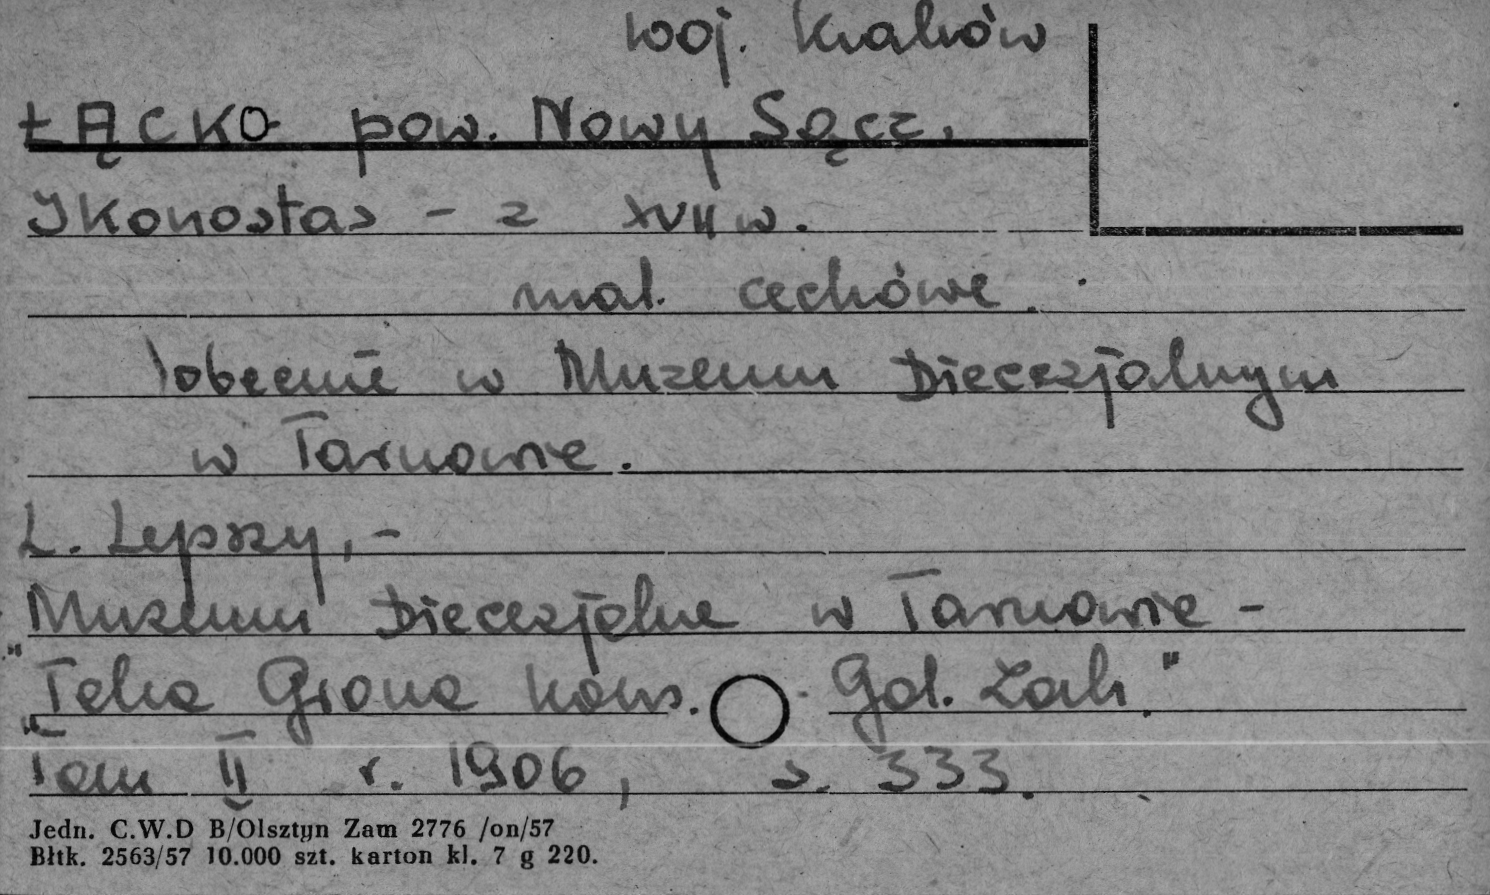 woj. Kraków
ŁĄCKO pow. Nowy Sącz.
Ikonostas - z XVII w.
mal. cechowe.
obecnie w Muzeum Diecezjalnym
w Tarnowie.
L. Lepszy, -
Muzeum Diecezjalne w Tarnowie -
"Teka Grona kons. Gal. Zach."
Tom II r. 1906, s. 333.
Jedn. C.W.D B/Olsztyn Zam 2776 /on/57
Błtk. 2563/57 10.000 szt. karton kl. 7 g 220.